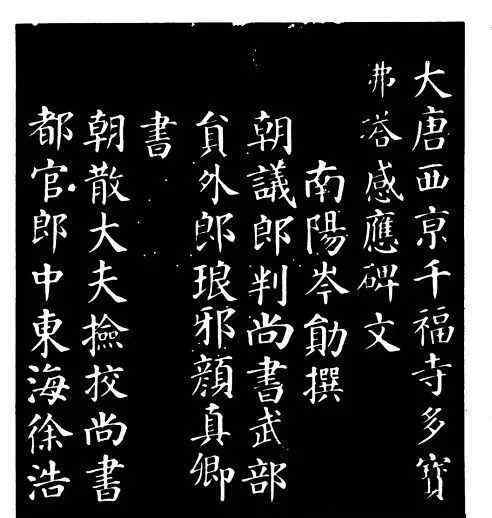 大唐西京千福寺多寶
弗塔感應碑文
南陽岑勛撰
朝議郎判尚書武部
貟外郎琅邪顏真卿
書
朝散大夫撿挍尚書
都官郎中東海徐浩